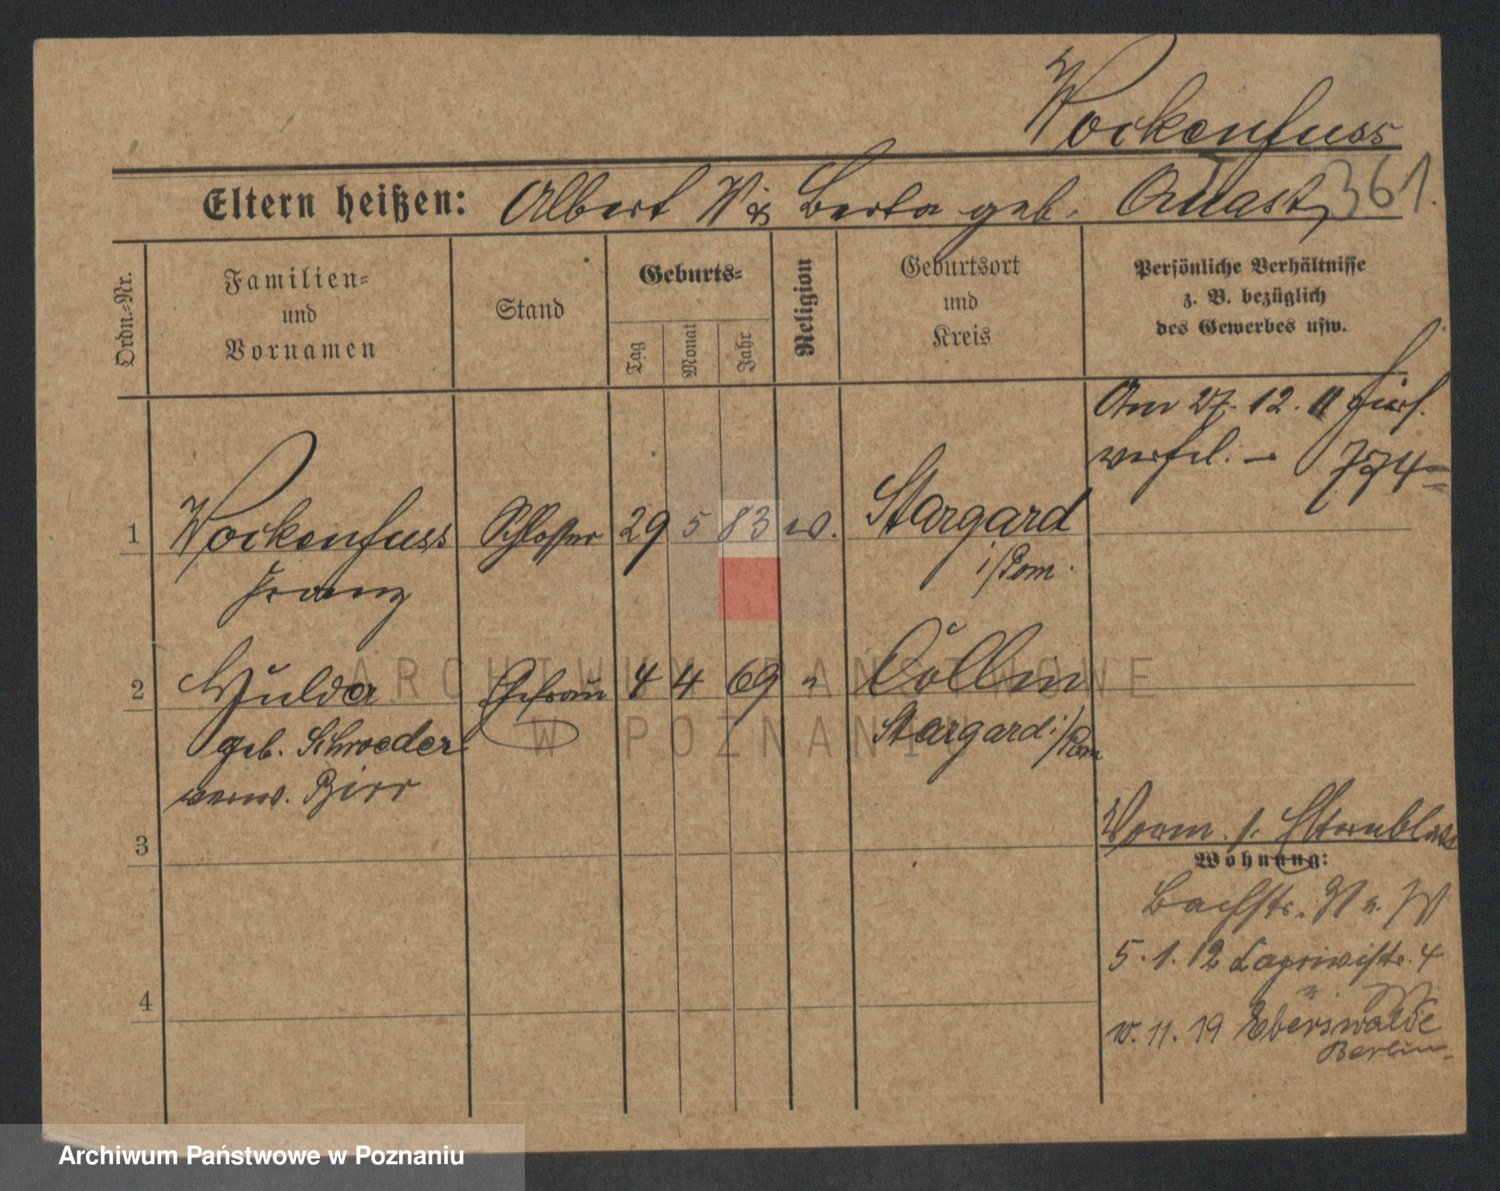 Wockenfuss
Eltern heißen: Albert W. & Berta geb. Quast, 361.
Ordn.=Nr.
Familien=
und
Vornamen
Stand
Geburts=
Tag
Monat
Jahr
Religion
Geburtsort
und
Kreis
Persönliche Verhältnisse
z. B. bezüglich
des Gewerbes usw.
Am 27. 12. 11
774
1 Wockenfuss Schlosser 29 5 83 ev. Stargard
Franz i/Pom.
2 Hulda Ehefrau 4 4 69 " Cöllin
geb. Schroeder Stargard i/Pom
verw. Birr
3
Wohnung:
Bachstr.
5. 1. 12
4
11. 19 Eberswalde
Berlin
ARCHIWUM PAŃSTWOWE
W POZNANIU
Archiwum Państwowe w Poznaniu